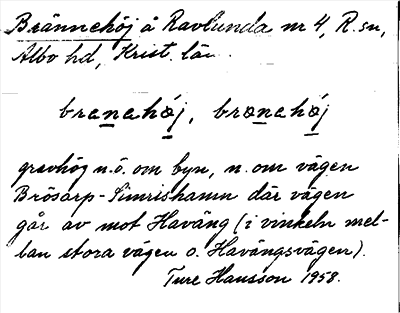 Brännehöj å Ravlunda nr 4, R. sn,
Albo hd, Krist. län.
branehøj, brønehøj
gravhög n.ö. om byn, n. om vägen
Brösarp-Simrishamn där vägen
går av mot Haväng (i vinkeln mel-
lan stora vägen o. Havängsvägen).
Ture Hansson 1958.